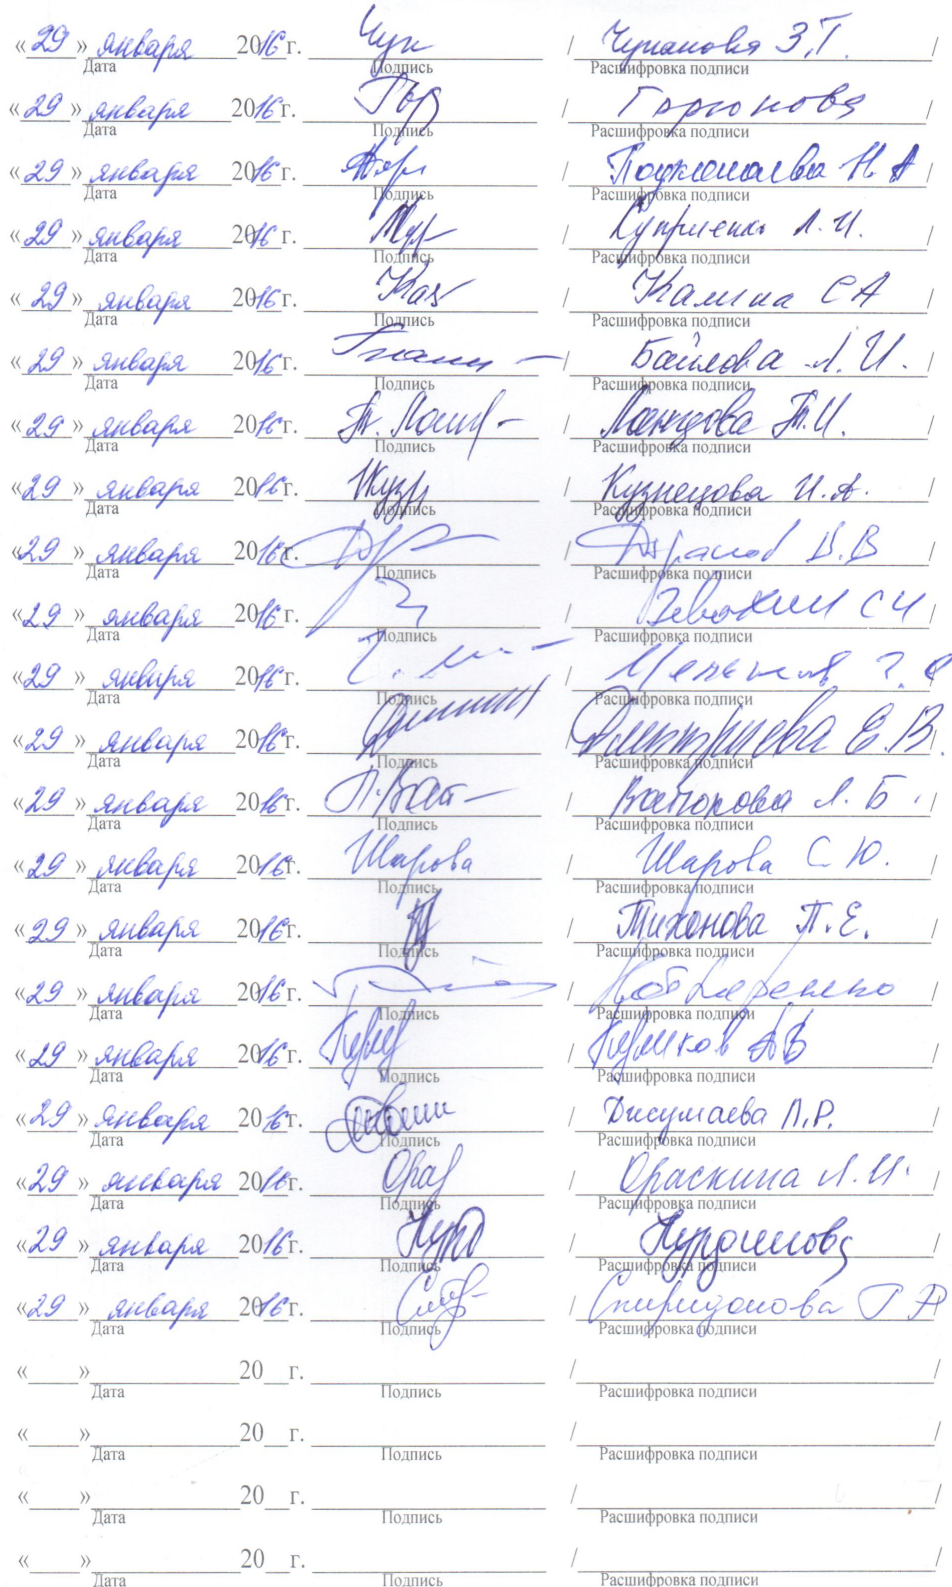 «29» января 2016г. Чуп / Чупанова З.Т. /
Дата Подпись Расшифровка подписи
«29» января 2016г. / Горюнова /
Дата Подпись Расшифровка подписи
«29» января 2016г. / Н. А /
Дата Подпись Расшифровка подписи
«29» января 2016г. / Куприенко Л.И. /
Дата Подпись Расшифровка подписи
«29» января 2016г. / Калина СА /
Дата Подпись Расшифровка подписи
«29» января 2016г. / Байлова Л.И. /
Дата Подпись Расшифровка подписи
«29» января 2016г. / Ланцова Т.И. /
Дата Подпись Расшифровка подписи
«29» января 2016г. / Кузнецова И.А. /
Дата Подпись Расшифровка подписи
«29» января 2016г. / В.В /
Дата Подпись Расшифровка подписи
«29» января 2016г. / /
Дата Подпись Расшифровка подписи
«29» января 2016г. / /
Дата Подпись Расшифровка подписи
«29» января 2016г. / Дмитриева Е.В. /
Дата Подпись Расшифровка подписи
«29» января 2016г. / Л.Б. /
Дата Подпись Расшифровка подписи
«29» января 2016г. Шарова / Шарова С.Ю. /
Дата Подпись Расшифровка подписи
«29» января 2016г. / Тихонова П.Е. /
Дата Подпись Расшифровка подписи
«29» января 2016г. / /
Дата Подпись Расшифровка подписи
«29» января 2016г. / АВ /
Дата Подпись Расшифровка подписи
«29» января 2016г. / Джумаева Л.Р. /
Дата Подпись Расшифровка подписи
«29» января 2016г. Ораз / Ораскина Л.И. /
Дата Подпись Расшифровка подписи
«29» января 2016г. / /
Дата Подпись Расшифровка подписи
«29» января 2016г. / Спиридонова Г А /
Дата Подпись Расшифровка подписи
«____»____________20__г. / /
Дата Подпись Расшифровка подписи
«____»____________20__г. / /
Дата Подпись Расшифровка подписи
«____»____________20__г. / /
Дата Подпись Расшифровка подписи
«____»____________20__г. / /
Дата Подпись Расшифровка подписи